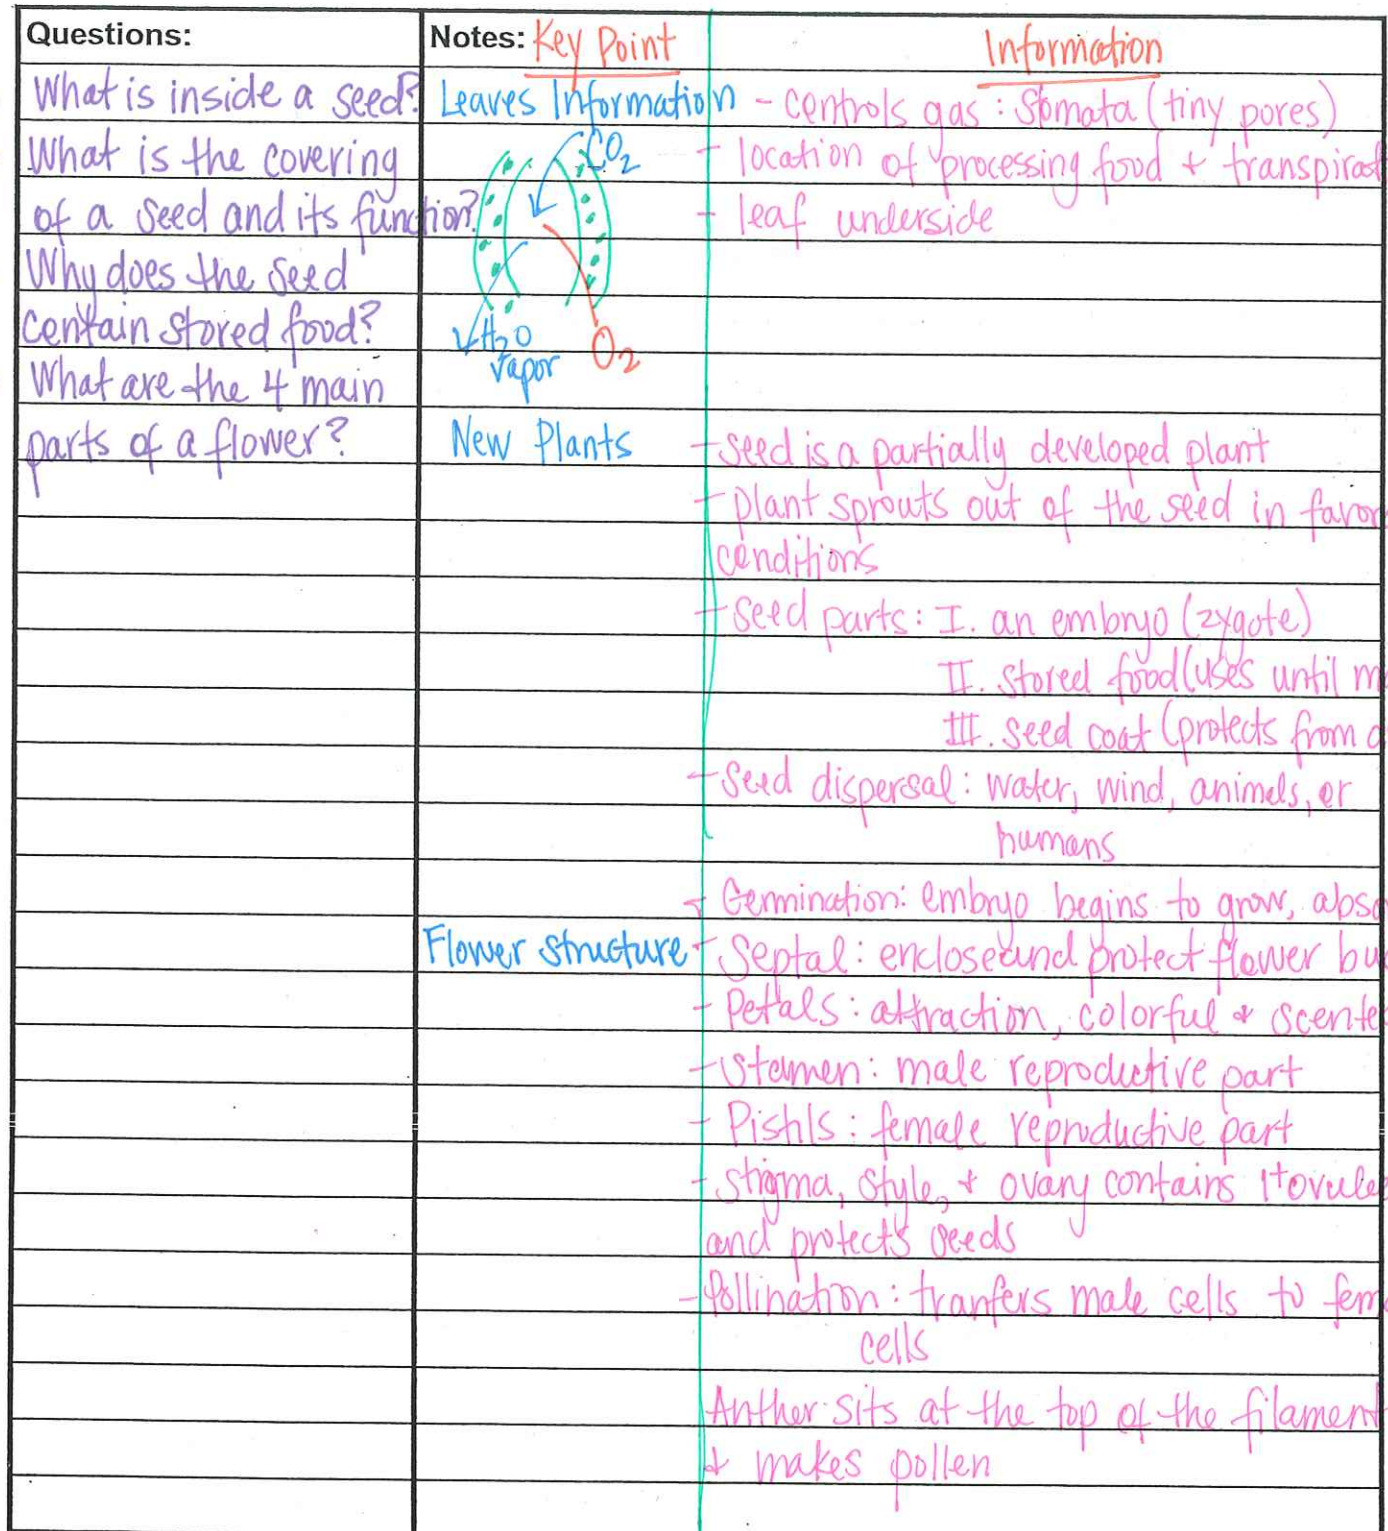 Questions:
What is inside a seed?
What is the covering
of a seed and its function?
Why does the seed
contain stored food?
What are the 4 main
parts of a flower?
Notes: Key Point
Leaves Information
CO2
H2O
vapor
O2
New Plants
Flower structure
Information
- controls gas : Stomata (tiny pores)
- location of processing food + transpirat
- leaf underside
- seed is a partially developed plant
- plant sprouts out of the seed in favor
conditions
- seed parts: I. an embryo (zygote)
II. stored food (uses until m
III. seed coat (protects from
- seed dispersal: water, wind, animals, or
humans
- Germination: embryo begins to grow, abso
- Septal: enclose and protect flower bu
- Petals: attraction, colorful + scente
- Stamen: male reproductive part
- Pistils: female reproductive part
- stigma, style, + ovary contains 1+ ovule
and protects seeds
- Pollination: tranfers male cells to fem
cells
Anther sits at the top of the filament
+ makes pollen